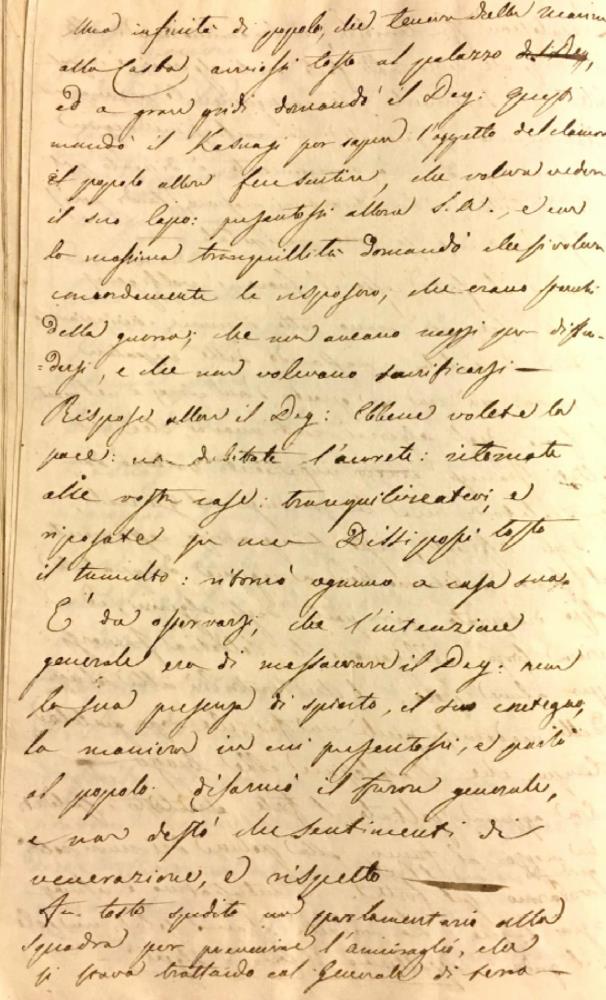 Una infinità di popolo, che teneva dalla marina
alla Casba avviossi tosto al palazzo del Dey,
ed a gran gridi domandò il Dey: questi
mandò il Kasnagi per saper l'oggetto del clamore
il popolo allora fece sentire, che voleva vedere
il suo Capo: presentossi allora S. A., e con
la massima tranquillità domandò che si voleva
concordemente le risposero, che erano stanchi
della guerra; che non aveano mezzi per diffen-
=dersi, e che non volevano sacrificarsi —
Rispose allora il Dey: Ebbene volete la
pace: non dubitate l'avrete: ritornate
alle vostre case: tranquilizzatevi, e
riposate su me Dissipossi tosto
il tumulto: ritornò ognuno a casa sua.
E' da osservarsi, che l'intenzione
generale era di massacrare il Dey: 
la sua presenza di spirito, il suo contegno,
la maniera in cui presentossi, e parlò
al popolo disarmò il furore generale,
e non destò che sentimenti di
venerazione, e rispetto —
Fu tosto spedito un parlamentario alla
squadra per prevenire l'amiraglio, che
si stava trattando col Generale di terra —